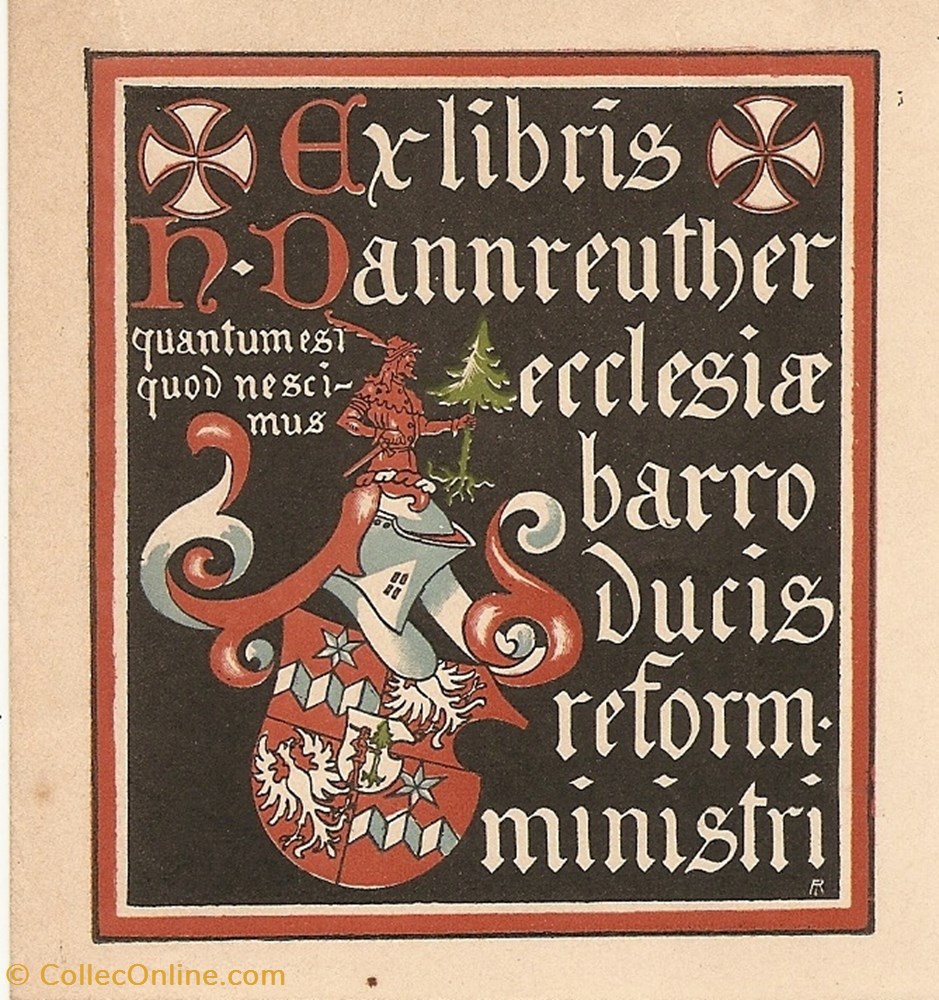 Ex libris
H. Dannreuther
quantum est
quod nesci-
mus
ecclesiæ
barro
ducis
reform.
ministri
© CollecOnline.com